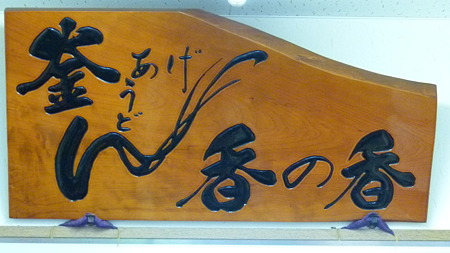 釜あげうどん
香の香